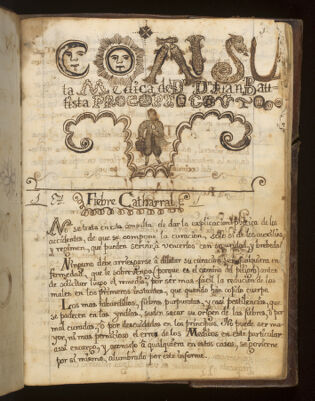 CONSU
ta Medica del D.r D. Juan Bau
tista PROCOPIO COUTO
Fiebre Catharral
No se trata en esta consulta de dar la explicacion de los
accidentes, de que se compone la curacion, solo si de los
y regimen, que pueden servir a vencerlos con seguridad, y brebedad
Ninguno debe arriesgarse a dilatar su curacion en qualquiera en
fermedad, que le sobrevenga (porque es el camino del peligro) antes
de solicitar luego el remedio, por ser mas facil la reducion de los
males en los primeros instantes, que quando han cojido cuerpo.
Los mas tabardillos, fiebres purpuratas, y casi pestilencias, que
se padecen en las Yndias, suelen sacar su origen de las fiebres, o por
mal curadas, o por descuidadas en los principios. No puede ser ma
yor, ni mas pernicioso el error de los Medicos en este particular
assi encargo, y aconsejo a qualquiera en estos casos, se govierne
por si mismo, alumbrado por este informe.